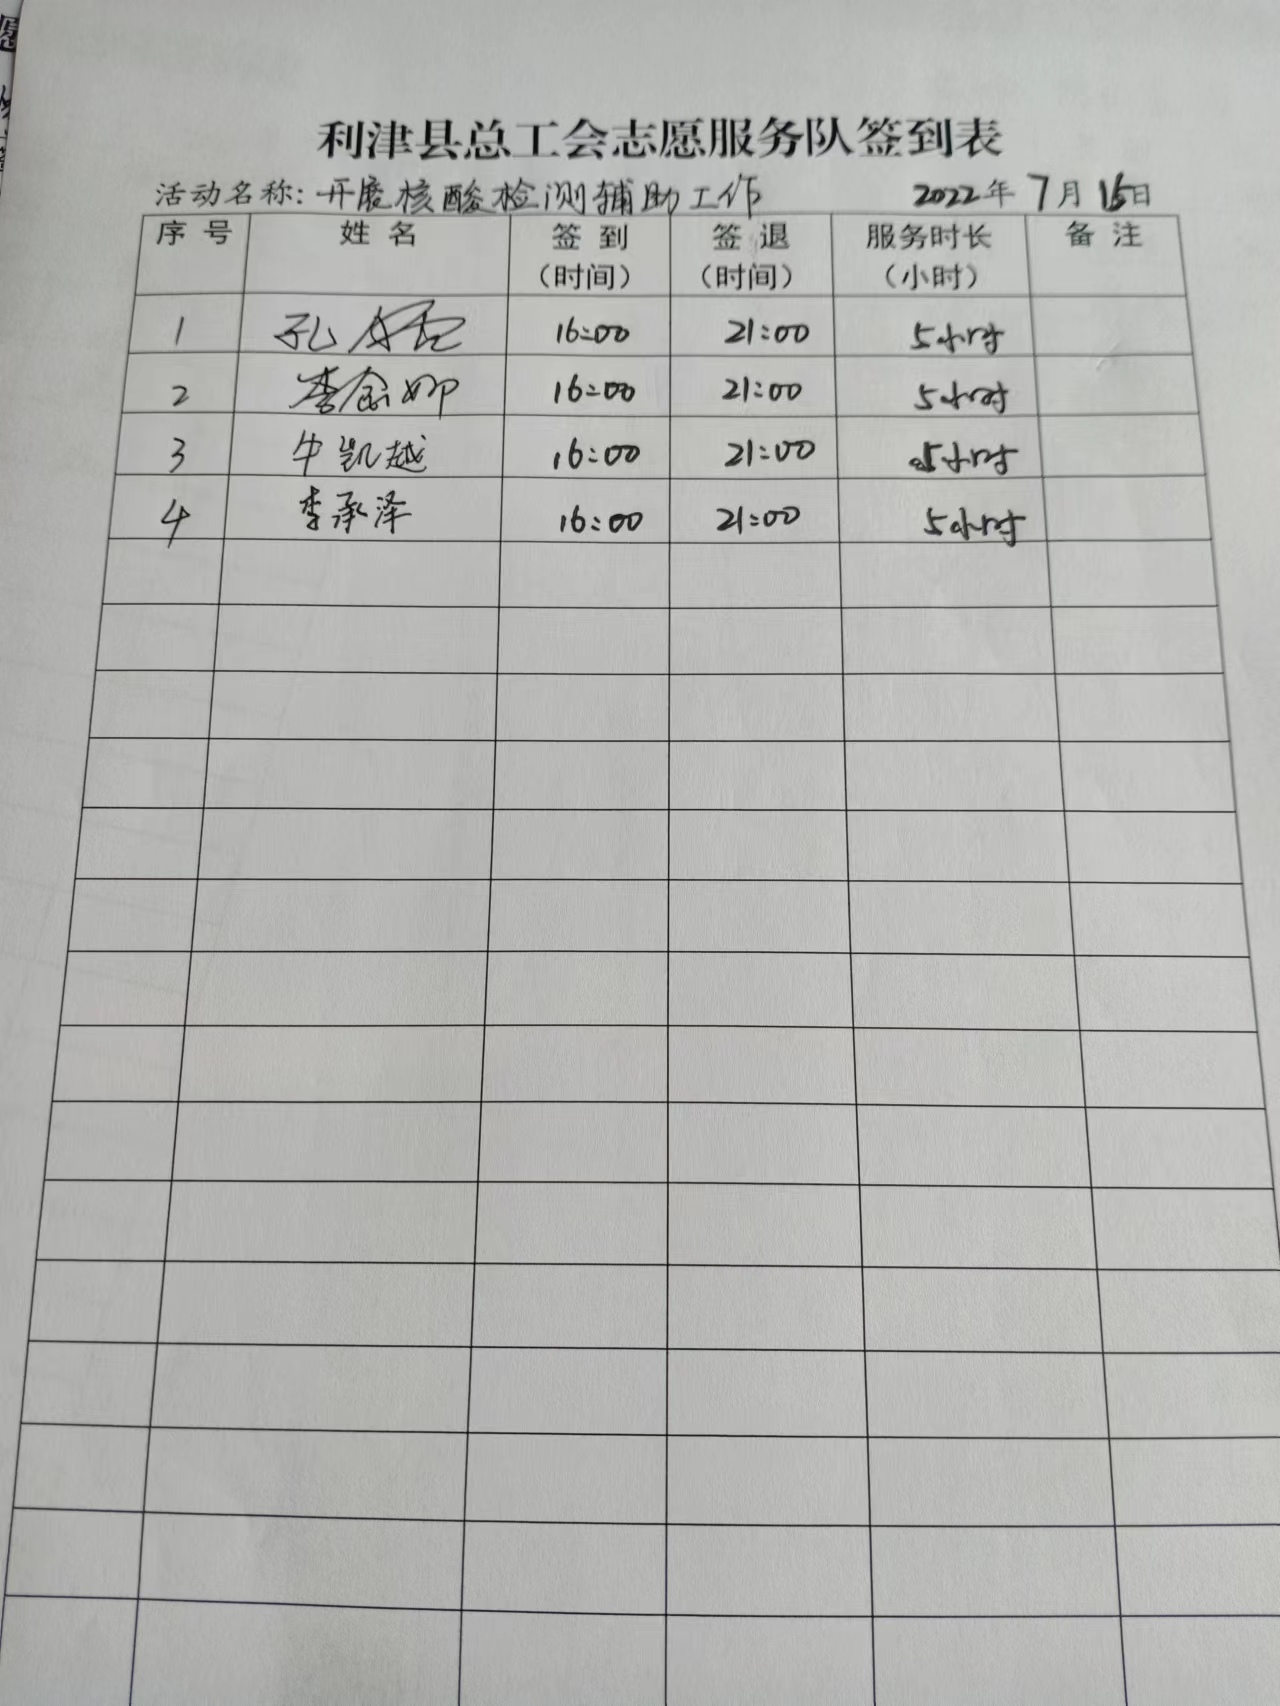 利津县总工会志愿服务队签到表
活动名称: 开展核酸检测辅助工作 2022年7月15日
序号 姓名 签到(时间) 签退(时间) 服务时长(小时) 备注
1 孔 16:00 21:00 5小时
2 李金娜 16:00 21:00 5小时
3 牛凯越 16:00 21:00 5小时
4 李承泽 16:00 21:00 5小时